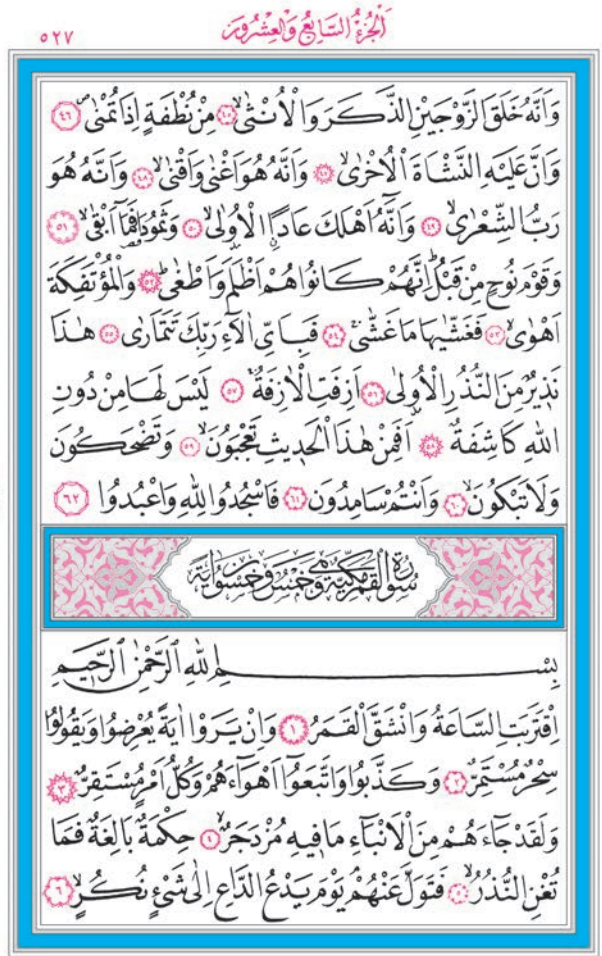 اَلْجُزْءُ السَّابِعُ وَالْعِشْرُونَ ٥٢٧
وَاَنَّهُ خَلَقَ الزَّوْجَيْنِ الذَّكَرَ وَالْاُنْثٰىۙ ٤٥ مِنْ نُطْفَةٍ اِذَا تُمْنٰىۖ ٤٦
وَاَنَّ عَلَيْهِ النَّشْاَةَ الْاُخْرٰىۙ ٤٧ وَاَنَّهُ هُوَ اَغْنٰى وَاَقْنٰىۙ ٤٨ وَاَنَّهُ هُوَ
رَبُّ الشِّعْرٰىۙ ٤٩ وَاَنَّهُٓ اَهْلَكَ عَادًاۨ الْاُو۫لٰىۙ ٥٠ وَثَمُودَا۬ فَمَٓا اَبْقٰىۙ ٥١
وَقَوْمَ نُوحٍ مِنْ قَبْلُۜ اِنَّهُمْ كَانُوا هُمْ اَظْلَمَ وَاَطْغٰىۜ ٥٢ وَالْمُؤْتَفِكَةَ
اَهْوٰىۙ ٥٣ فَغَشّٰيهَا مَا غَشّٰىۚ ٥٤ فَبِاَيِّ اٰلَٓاءِ رَبِّكَ تَتَمَارٰى ٥٥ هٰذَا
نَذ۪يرٌ مِنَ النُّذُرِ الْاُو۫لٰى ٥٦ اَزِفَتِ الْاٰزِفَةُۚ ٥٧ لَيْسَ لَهَا مِنْ دُونِ
اللّٰهِ كَاشِفَةٌۜ ٥٨ اَفَمِنْ هٰذَا الْحَد۪يثِ تَعْجَبُونَۙ ٥٩ وَتَضْحَكُونَ
وَلَا تَبْكُونَۙ ٦٠ وَاَنْتُمْ سَامِدُونَ ٦١ فَاسْجُدُوا لِلّٰهِ وَاعْبُدُوا ٦٢
سُورَةُ الْقَمَرِ مَكِّيَّةٌ وَهِيَ خَمْسٌ وَخَمْسُونَ اٰيَةً
بِسْمِ اللّٰهِ الرَّحْمٰنِ الرَّح۪يمِ
اِقْتَرَبَتِ السَّاعَةُ وَانْشَقَّ الْقَمَرُ ١ وَاِنْ يَرَوْا اٰيَةً يُعْرِضُوا وَيَقُولُوا
سِحْرٌ مُسْتَمِرٌّ ٢ وَكَذَّبُوا وَاتَّبَعُٓوا اَهْوَٓاءَهُمْ وَكُلُّ اَمْرٍ مُسْتَقِرٌّ ٣
وَلَقَدْ جَٓاءَهُمْ مِنَ الْاَنْبَٓاءِ مَا ف۪يهِ مُزْدَجَرٌۙ ٤ حِكْمَةٌ بَالِغَةٌ فَمَا
تُغْنِ النُّذُرُۙ ٥ فَتَوَلَّ عَنْهُمْۢ يَوْمَ يَدْعُ الدَّاعِ اِلٰى شَيْءٍ نُكُرٍۙ ٦